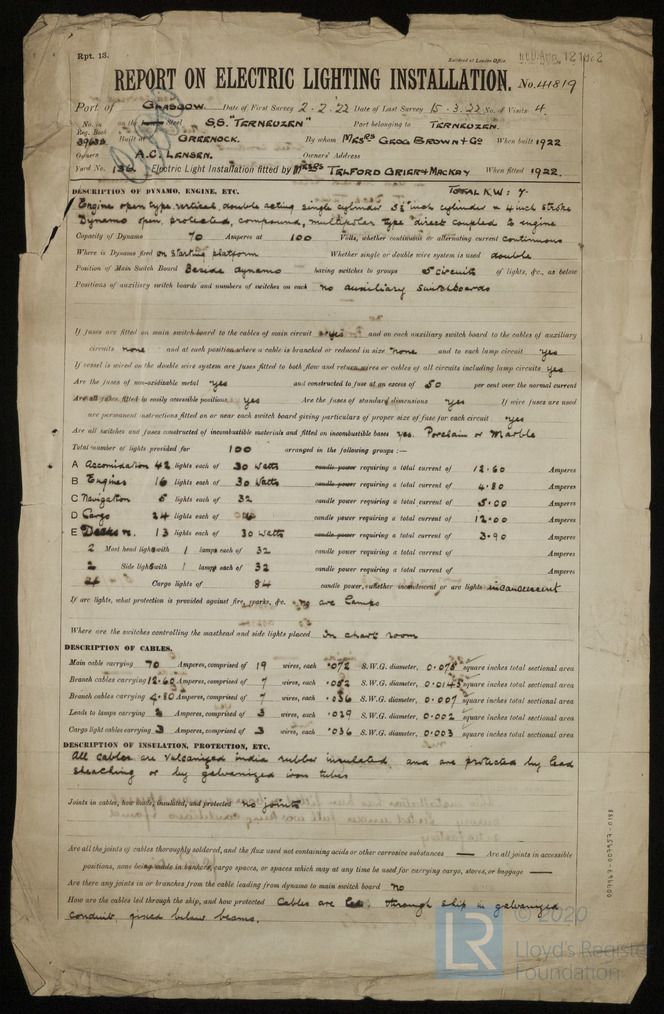 Rpt. 13.
REPORT ON ELECTRIC LIGHTING INSTALLATION. No. 41819
Port of GLASGOW. Date of First Survey 2-2-22 Date of Last Survey 15.3.22 No. of Visits 4.
No. in on the Steel S.S. "TERNEUZEN" Port belonging to TERNEUZEN.
Reg. Book
Built at GREENOCK. By whom MESSRS GEOG BROWN & CO When built 1922
Owners A.C. LENSEN. Owners' Address
Yard No. 136. Electric Light Installation fitted by MESSRS TELFORD GRIER & MACKAY When fitted 1922.
DESCRIPTION OF DYNAMO, ENGINE, ETC. TOTAL K.W: 7.
Engine open type vertical, double acting single cylinder inch cylinder × 4 inch stroke
Dynamo open, protected, compound, multipolar type direct coupled to engine
Capacity of Dynamo 70 Amperes at 100 Volts, whether continuous or alternating current continuous
Where is Dynamo fixed on starting platform Whether single or double wire system is used double
Position of Main Switch Board Beside dynamo having switches to groups 5 circuits of lights, &c., as below
Positions of auxiliary switch boards and numbers of switches on each no auxiliary switchboards
If fuses are fitted on main switch board to the cables of main circuit yes and on each auxiliary switch board to the cables of auxiliary
circuits none and at each position where a cable is branched or reduced in size none and to each lamp circuit yes
If vessel is wired on the double wire system are fuses fitted to both flow and return wires or cables of all circuits including lamp circuits yes
Are the fuses of non-oxidizable metal yes and constructed to fuse at an excess of 50 per cent over the normal current
Are all fuses fitted in easily accessible positions yes Are the fuses of standard dimensions yes If wire fuses are used
are permanent instructions fitted on or near each switch board giving particulars of proper size of fuse for each circuit yes
Are all switches and fuses constructed of incombustible materials and fitted on incombustible bases yes. Porcelain or Marble
Total number of lights provided for 100 arranged in the following groups :—
A Accomidation 42 lights each of 30 Watts candle power requiring a total current of 12.60 Amperes
B Engines 16 lights each of 30 Watts candle power requiring a total current of 4.80 Amperes
C Navigation 5 lights each of 32 candle power requiring a total current of 5.00 Amperes
D Cargo 24 lights each of candle power requiring a total current of 12.00 Amperes
E 13 lights each of 30 Watts candle power requiring a total current of 3.90 Amperes
2 Mast head light with 1 lamps each of 32 candle power requiring a total current of Amperes
2 Side light with 1 lamps each of 32 candle power requiring a total current of Amperes
24 Cargo lights of candle power, whether incandescent or arc lights incandescent
If arc lights, what protection is provided against fire, sparks, &c. no arc lamps
Where are the switches controlling the masthead and side lights placed In chart room
DESCRIPTION OF CABLES.
Main cable carrying 70 Amperes, comprised of 19 wires, each .072 S.W.G. diameter, 0.075 square inches total sectional area
Branch cables carrying 12.60 Amperes, comprised of 7 wires, each .052 S.W.G. diameter, 0.0145 square inches total sectional area
Branch cables carrying 4.80 Amperes, comprised of 7 wires, each .036 S.W.G. diameter, 0.007 square inches total sectional area
Leads to lamps carrying Amperes, comprised of 3 wires, each .029 S.W.G. diameter, 0.002 square inches total sectional area
Cargo light cables carrying 3 Amperes, comprised of 3 wires, each .036 S.W.G. diameter, 0.003 square inches total sectional area
DESCRIPTION OF INSULATION, PROTECTION, ETC.
All cables are vulcanized india rubber insulated and are protected by lead
sheathing or by galvanized iron tubes
Joints in cables, how made, insulated, and protected no joints
Are all the joints of cables thoroughly soldered, and the flux used not containing acids or other corrosive substances — Are all joints in accessible
positions, none being made in bunkers, cargo spaces, or spaces which may at any time be used for carrying cargo, stores, or baggage —
Are there any joints in or branches from the cable leading from dynamo to main switch board no
How are the cables led through the ship, and how protected Cables are led through ship in galvanized
conduit, fixed below beams.
© 2020
LR Lloyd's Register
Foundation